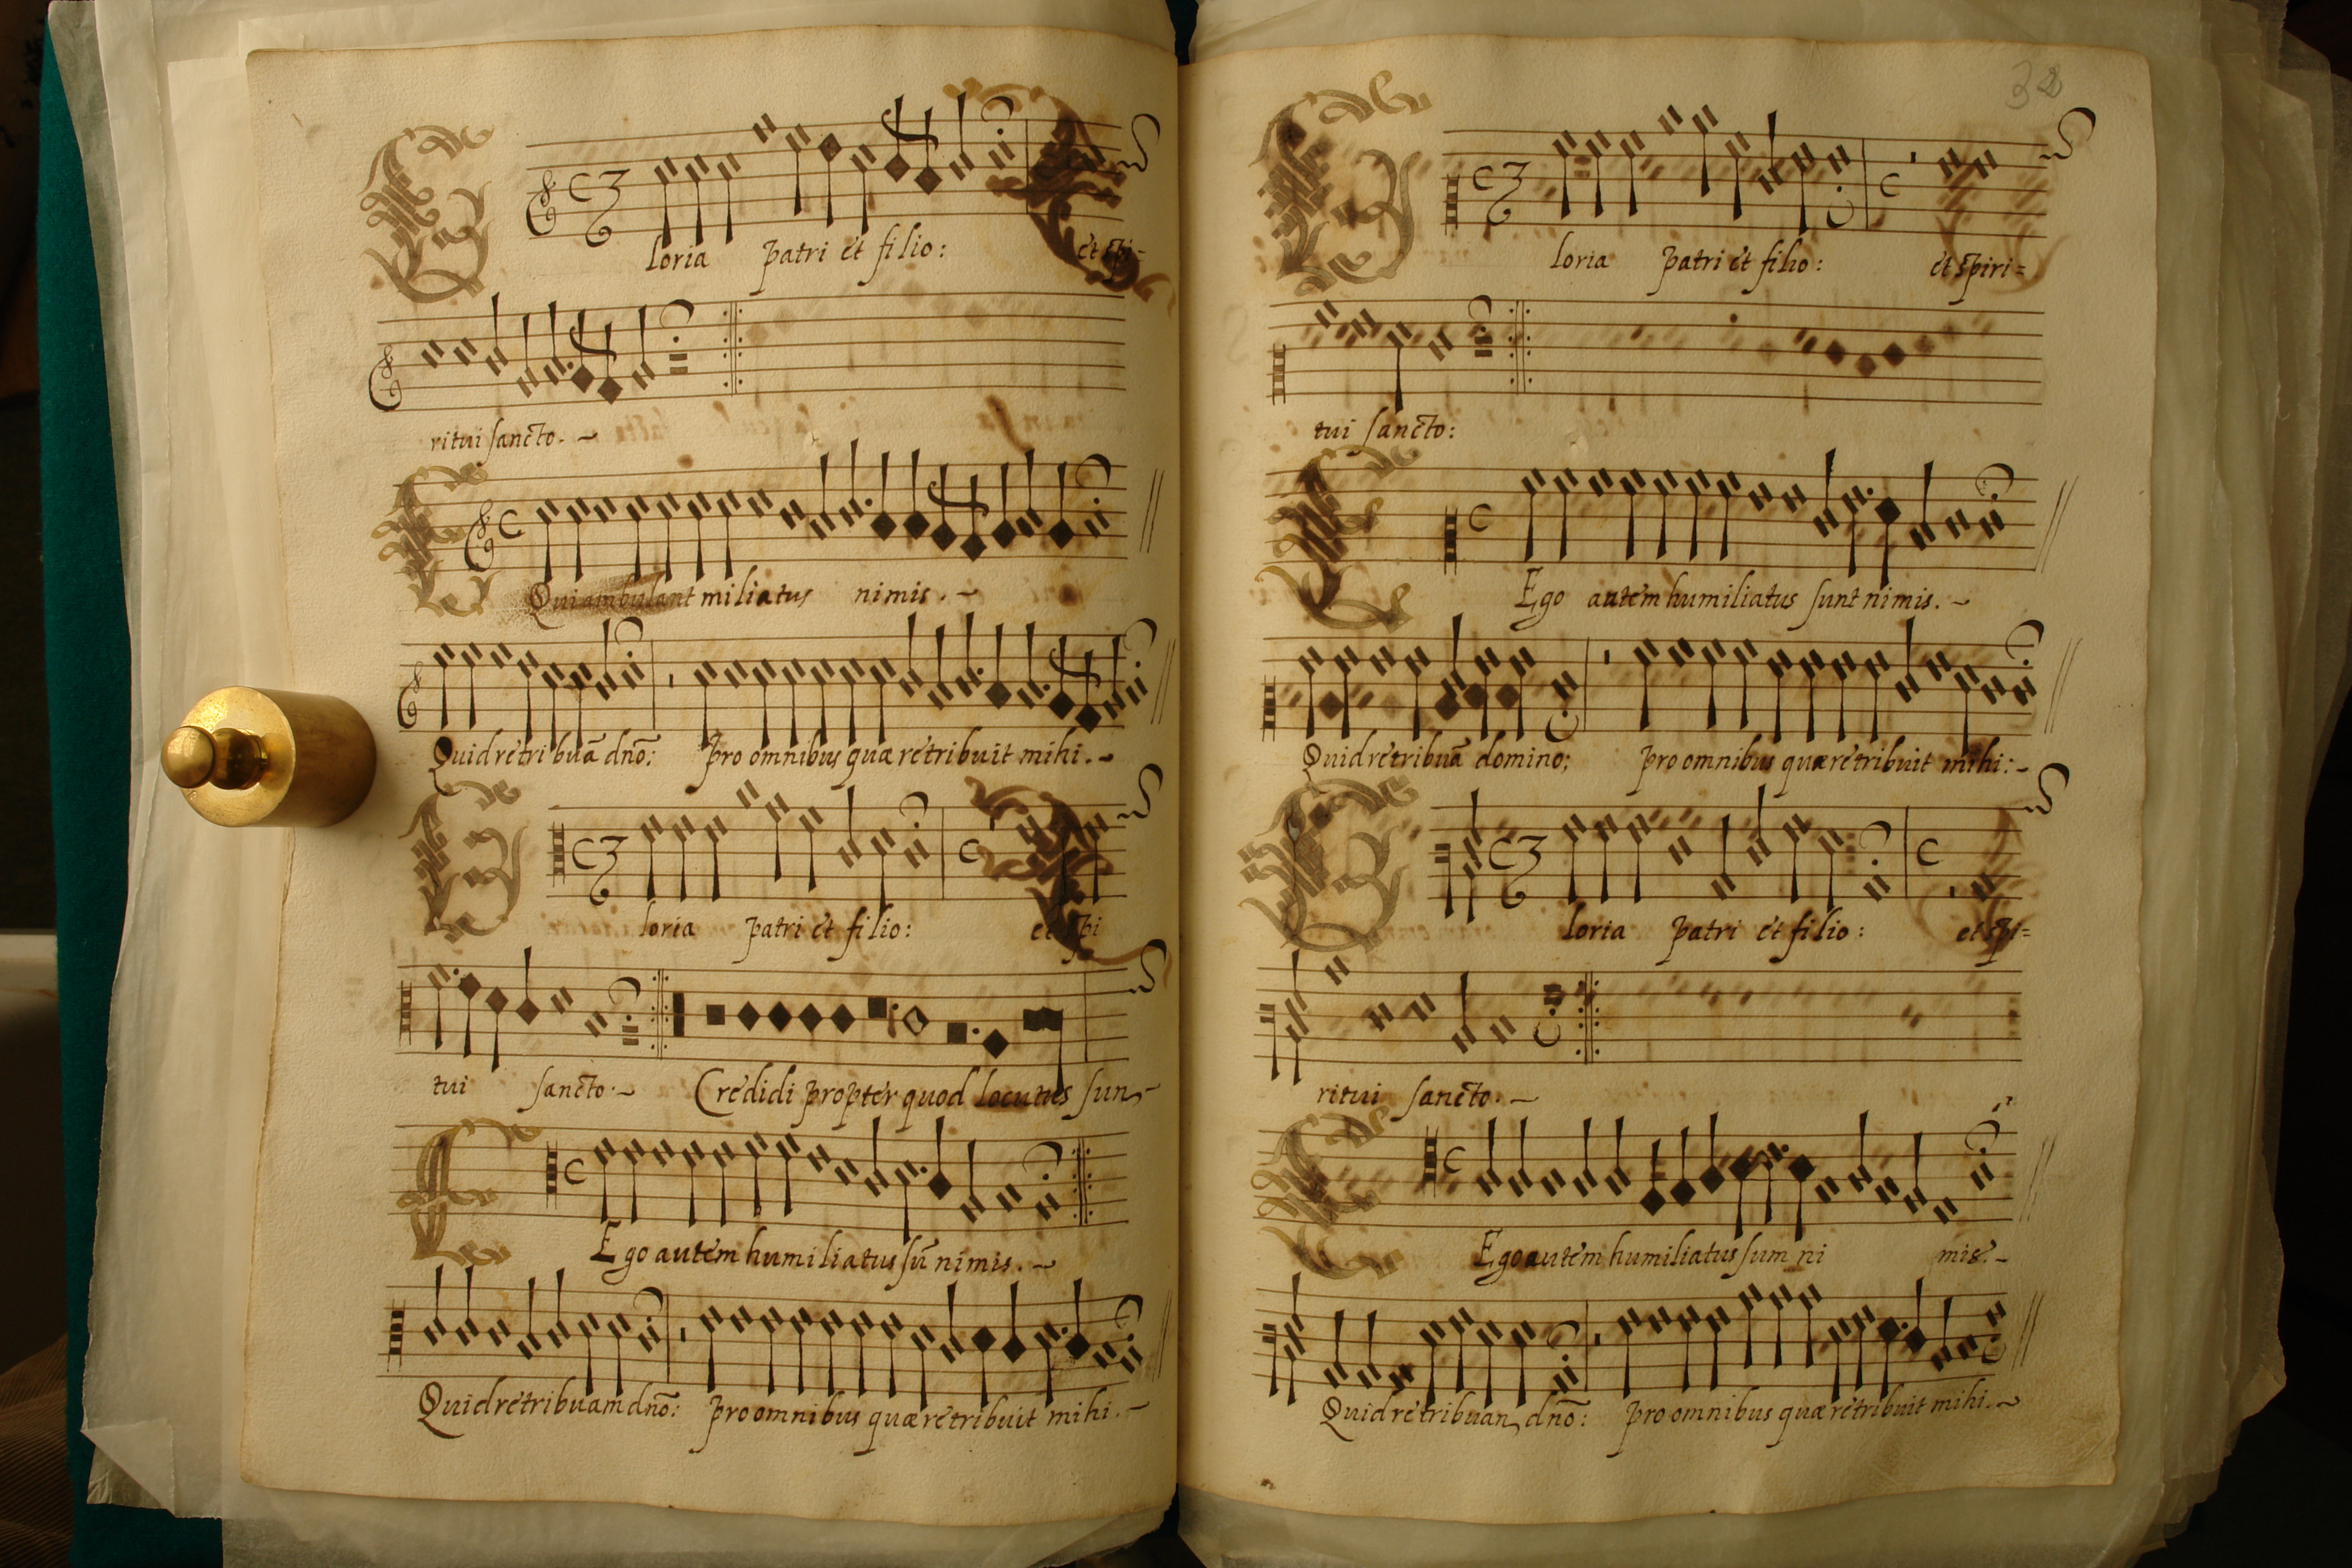 Gloria patri et filio: et spi-
ritui sancto.
Qui ambulant miliatus nimis.
Quid retribuā dño: Pro omnibus quæ retribuit mihi.
Gloria patri et filio: et spi
tui sancto. Credidi propter quod locutus sum
Ego autem humiliatus sū nimis.
Quid retribuam dño: pro omnibus quæ retribuit mihi.
32
Gloria patri et filio: et spiri=
tui sancto:
Ego autem humiliatus sunt nimis.
Quid retribuā domino: pro omnibus quæ retribuit mihi:
Gloria patri et filio: et spi=
ritui sancto.
Ego autem humiliatus sum ni mis.
Quid retribuam dño: pro omnibus quæ retribuit mihi.